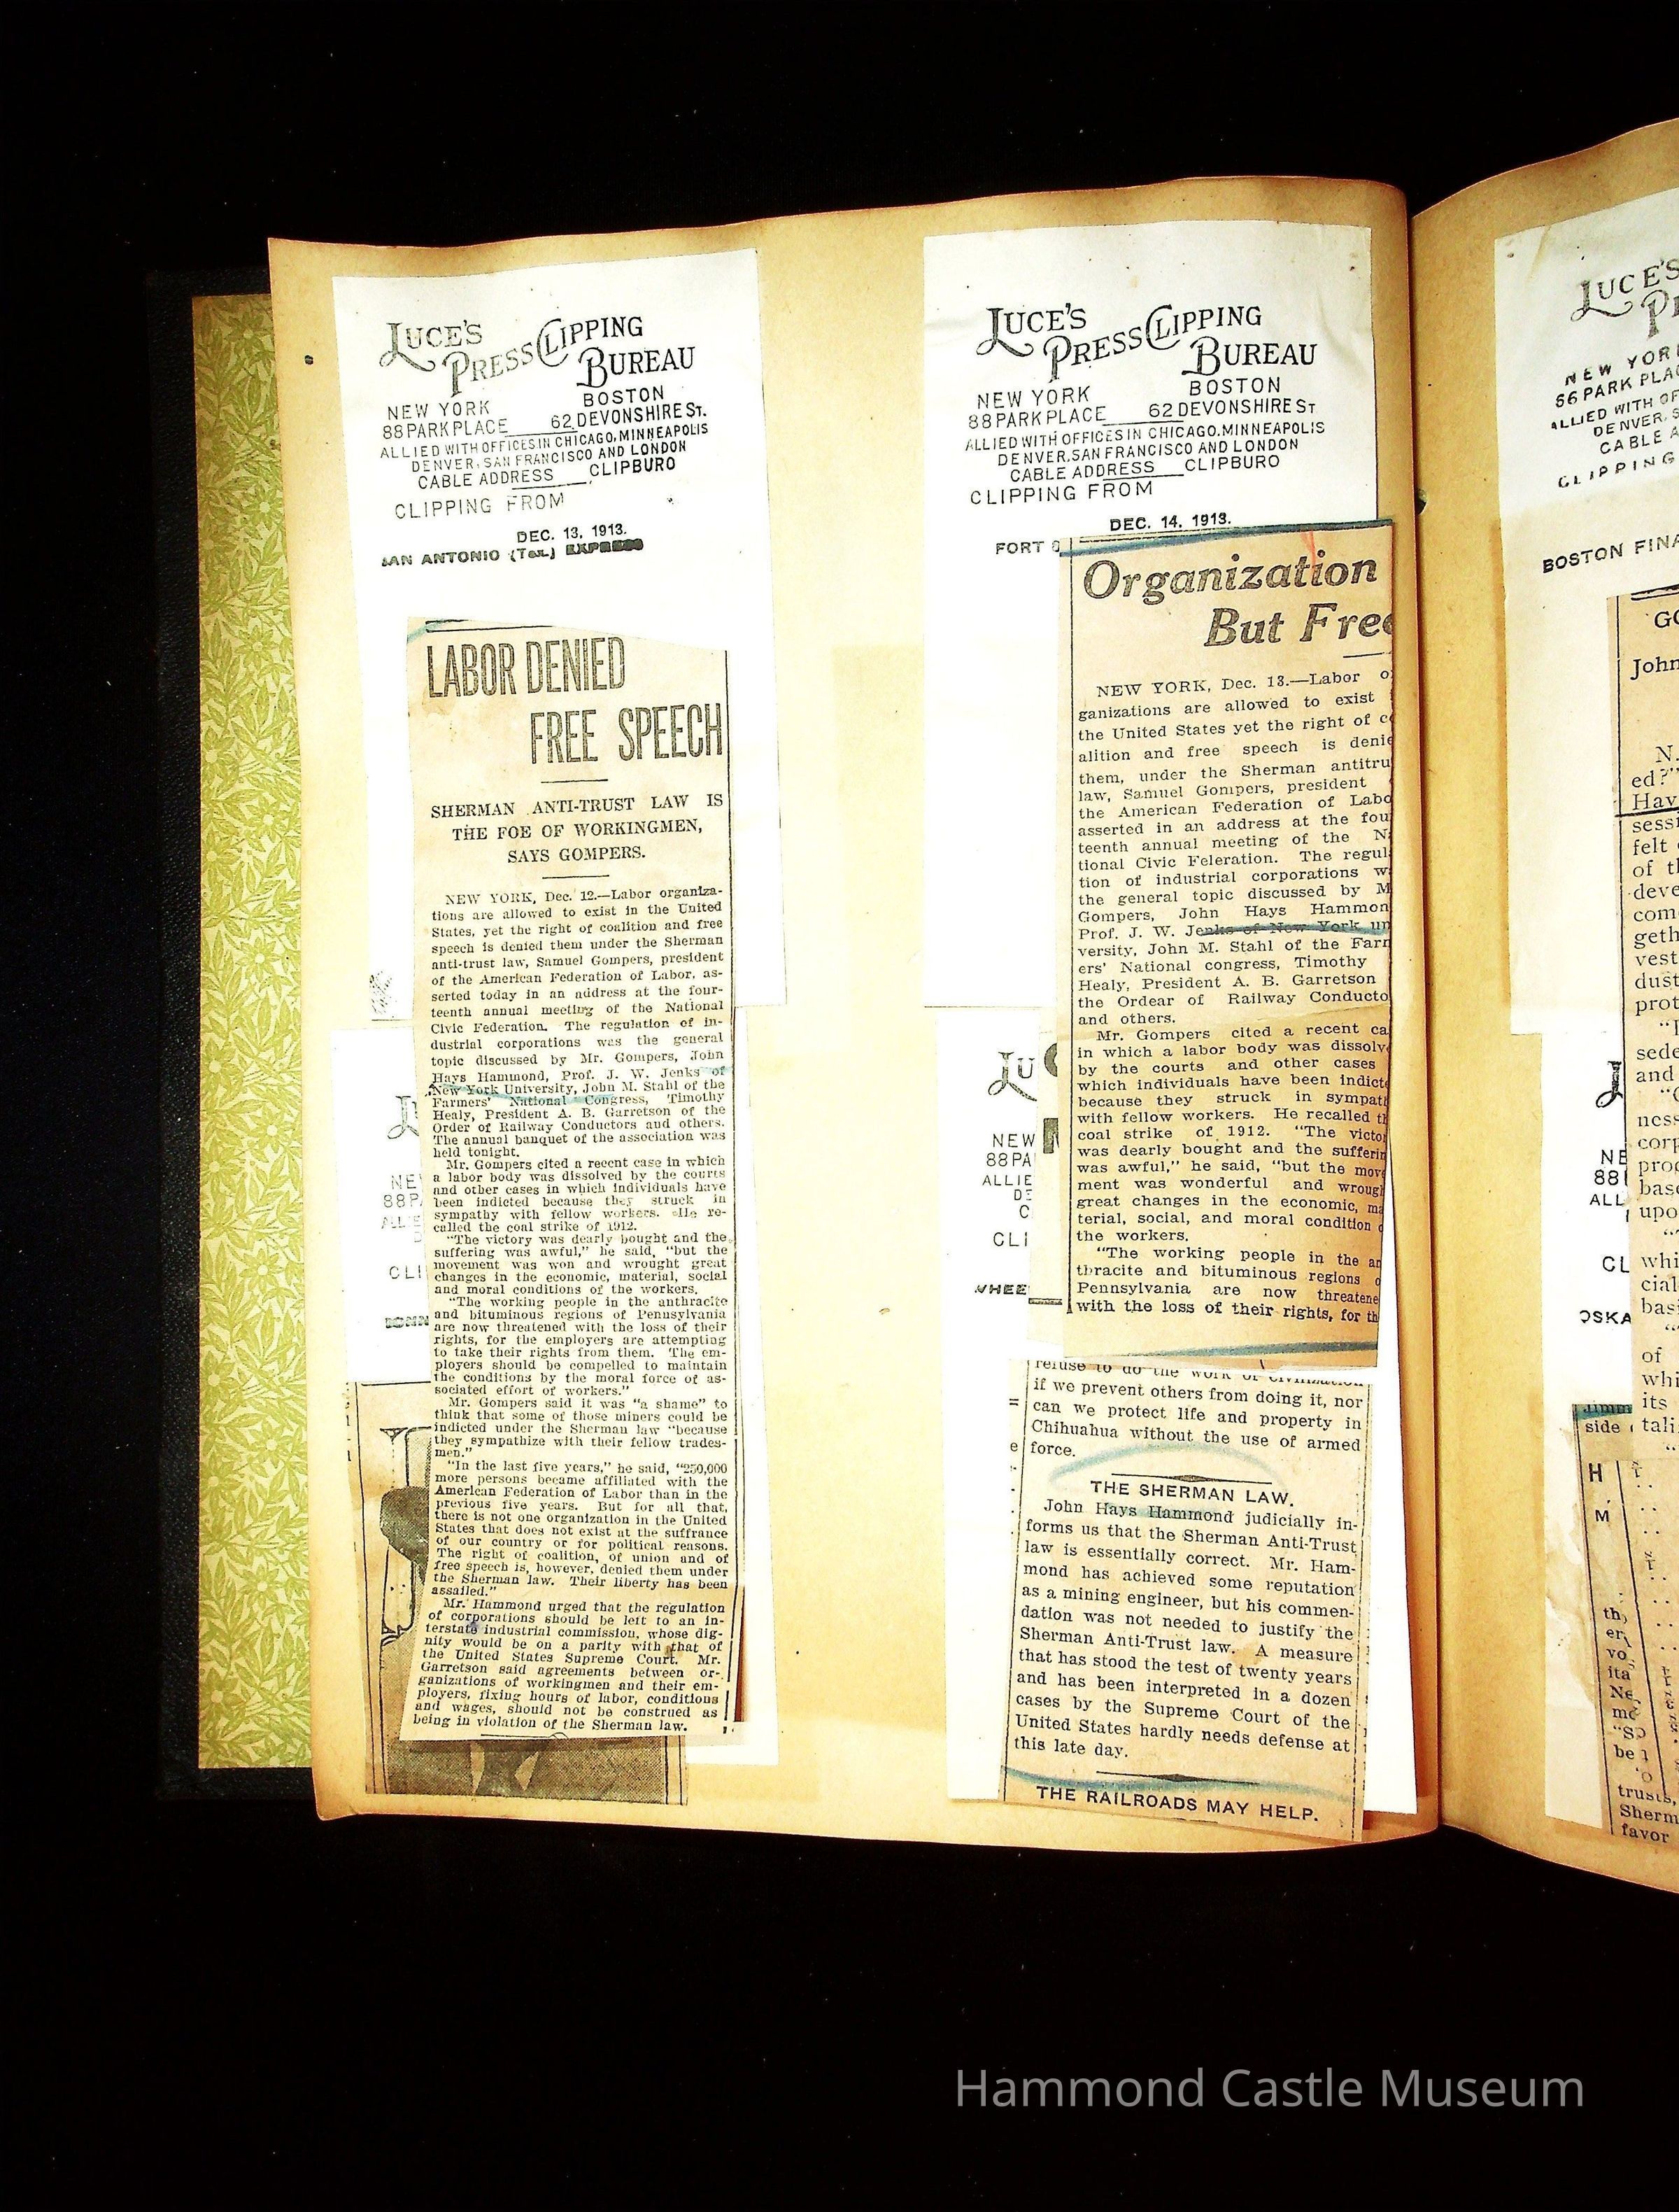 LUCE'S
PRESS CLIPPING
BUREAU
NEW YORK BOSTON
88 PARK PLACE 62 DEVONSHIRE ST.
ALLIED WITH OFFICES IN CHICAGO, MINNEAPOLIS
DENVER, SAN FRANCISCO AND LONDON
CABLE ADDRESS CLIPBURO
CLIPPING FROM
DEC. 13, 1913.
SAN ANTONIO (Tex.) EXPRESS
LABOR DENIED
FREE SPEECH
SHERMAN ANTI-TRUST LAW IS
THE FOE OF WORKINGMEN,
SAYS GOMPERS.
NEW YORK, Dec. 12.—Labor organiza-
tions are allowed to exist in the United
States, yet the right of coalition and free
speech is denied them under the Sherman
anti-trust law, Samuel Gompers, president
of the American Federation of Labor, as-
serted today in an address at the four-
teenth annual meeting of the National
Civic Federation. The regulation of in-
dustrial corporations was the general
topic discussed by Mr. Gompers, John
Hays Hammond, Prof. J. W. Jenks of
New York University, John M. Stahl of the
Farmers' National Congress, Timothy
Healy, President A. B. Garretson of the
Order of Railway Conductors and others.
The annual banquet of the association was
held tonight.
Mr. Gompers cited a recent case in which
a labor body was dissolved by the courts
and other cases in which individuals have
been indicted because they struck in
sympathy with fellow workers. He re-
called the coal strike of 1912.
"The victory was dearly bought and the
suffering was awful," he said, "but the
movement was won and wrought great
changes in the economic, material, social
and moral conditions of the workers.
"The working people in the anthracite
and bituminous regions of Pennsylvania
are now threatened with the loss of their
rights, for the employers are attempting
to take their rights from them. The em-
ployers should be compelled to maintain
the conditions by the moral force of as-
sociated effort of workers."
Mr. Gompers said it was "a shame" to
think that some of those miners could be
indicted under the Sherman law "because
they sympathize with their fellow trades-
men."
"In the last five years," he said, "250,000
more persons became affiliated with the
American Federation of Labor than in the
previous five years. But for all that,
there is not one organization in the United
States that does not exist at the suffrance
of our country or for political reasons.
The right of coalition, of union and of
free speech is, however, denied them under
the Sherman law. Their liberty has been
assailed."
Mr. Hammond urged that the regulation
of corporations should be left to an in-
terstate industrial commission, whose dig-
nity would be on a parity with that of
the United States Supreme Court. Mr.
Garretson said agreements between or-
ganizations of workingmen and their em-
ployers, fixing hours of labor, conditions
and wages, should not be construed as
being in violation of the Sherman law.
NE
88 P
CLI
LUCE'S
PRESS CLIPPING
BUREAU
NEW YORK BOSTON
88 PARK PLACE 62 DEVONSHIRE ST
ALLIED WITH OFFICES IN CHICAGO, MINNEAPOLIS
DENVER, SAN FRANCISCO AND LONDON
CABLE ADDRESS CLIPBURO
CLIPPING FROM
DEC. 14, 1913.
FORT
Organization
But Free
NEW YORK, Dec. 13.—Labor o
ganizations are allowed to exist
the United States yet the right of c
alition and free speech is denie
them, under the Sherman antitru
law, Samuel Gompers, president
the American Federation of Labo
asserted in an address at the fou
teenth annual meeting of the N
tional Civic Feleration. The regul
tion of industrial corporations w
the general topic discussed by M
Gompers, John Hays Hammon
Prof. J. W. Jenks of New York un
versity, John M. Stahl of the Farm
ers' National congress, Timothy
Healy, President A. B. Garretson
the Ordear of Railway Conducto
and others.
Mr. Gompers cited a recent ca
in which a labor body was dissolv
by the courts and other cases
which individuals have been indicte
because they struck in sympat
with fellow workers. He recalled th
coal strike of 1912. "The victo
was dearly bought and the sufferin
was awful," he said, "but the mov
ment was wonderful and wrough
great changes in the economic, ma
terial, social, and moral condition o
the workers.
"The working people in the an
thracite and bituminous regions o
Pennsylvania are now threatene
with the loss of their rights, for th
LU
NEW
88 PA
ALLIE
DE
C
CLI
WHEE
refuse to do the work of civilization
if we prevent others from doing it, nor
can we protect life and property in
Chihuahua without the use of armed
force.
THE SHERMAN LAW.
John Hays Hammond judicially in-
forms us that the Sherman Anti-Trust
law is essentially correct. Mr. Ham-
mond has achieved some reputation
as a mining engineer, but his commen-
dation was not needed to justify the
Sherman Anti-Trust law. A measure
that has stood the test of twenty years
and has been interpreted in a dozen
cases by the Supreme Court of the
United States hardly needs defense at
this late day.
THE RAILROADS MAY HELP.
LUCE'S
PR
NEW YORK
66 PARK PLAC
ALLIED WITH OF
DENVER, S
CABLE A
CLIPPING
BOSTON FINA
GO
John
N.
ed?"
Hav
sessi
felt
of th
deve
com
geth
vest
dust
prot
"I
sede
and
"C
ness
corp
prod
base
upo
whi
cial
basi
of
whi
its
tali
NE
88
ALL
CL
OSKA
side
H
M
th
er
vo
ita
Ne
me
"So
be
trusts,
Sherm
favor
Hammond Castle Museum